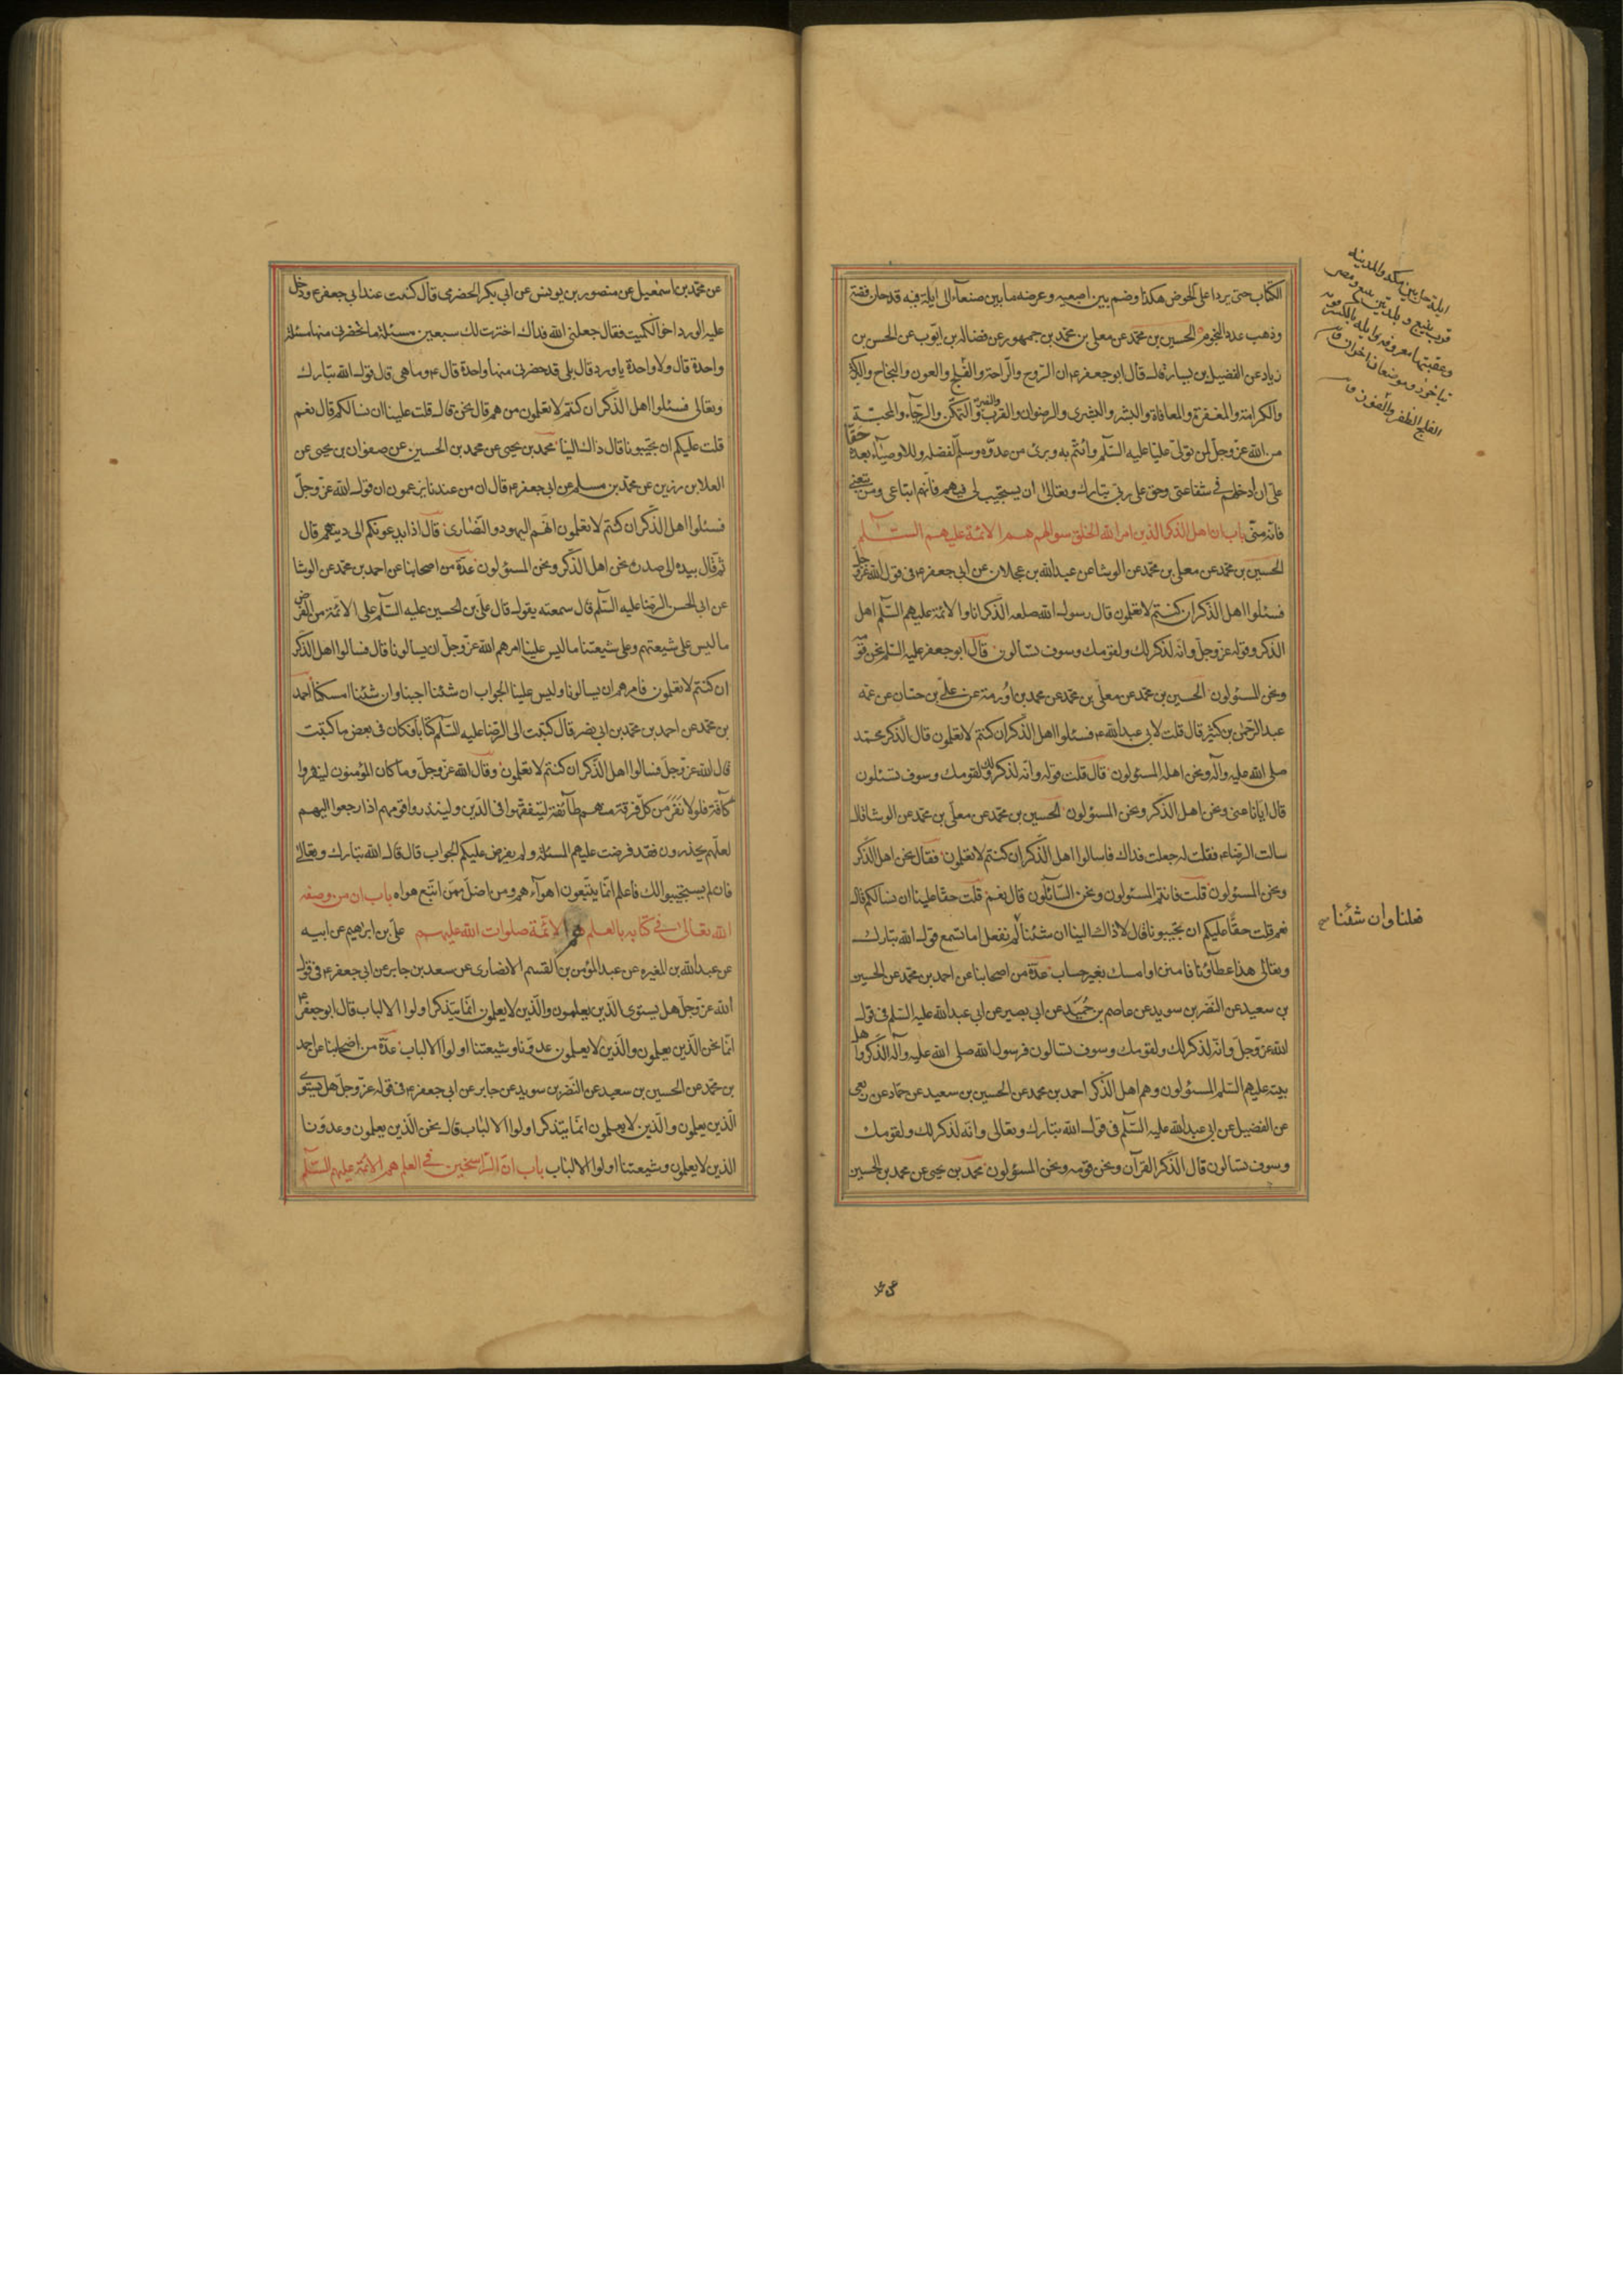 الكتاب حتى يردا على الحوض هكذا وضم بين اصبعيه وعرضه ما بين صنعآء الى ايلة فيه قدحان فضة
وذهب عدد النجوم الحسين بن محمد عن معلى بن محمد بن جمهور عن فضاله بن ايّوب عن الحسن بن
زياد عن الفضيل بن يسار قال قال ابو جعفر ع ان الرّوح والرّاحة والفلج والعون والنجاح والبركة
والكرامة والمغفرة والمعافاة واليسر والبشرى والرضوان والقرب والنصر والتمكن والرّجآء والمحبّة
من الله عزّ وجلّ لمن تولّى عليّا عليه السّلم وائتم به وبرئ من عدوّه وسلّم لفضله وللاوصيآء بعده حقّا
علىّ ان ادخلهم في شفاعتي وحق على ربّي تبارك وتعالى ان يستجيب لي فيهم فانّهم اتباعي ومن تبعني
فانّه منّي باب ان اهل الذكر الذين امر الله الخلق بسؤالهم هم الائمة عليهم السّلم
الحسين بن محمد عن معلى بن محمد عن الوشا عن عبد الله بن عجلان عن ابي جعفر ع في قول الله عزّ وجلّ
فسئلوا اهل الذكر ان كنتم لا تعلمون قال رسول الله صلعم الذّكر انا والائمة عليهم السّلم اهل
الذكر وقوله عزّ وجلّ وانّه لذكر لك ولقومك وسوف تسالون قال ابو جعفر عليه السّلم نحن قومه
ونحن المسئولون الحسين بن محمد عن معلى بن محمد عن محمد بن اورمة عن علي بن حسّان عن عمّه
عبد الرّحمن بن كثير قال قلت لابي عبد الله ع فسئلوا اهل الذّكر ان كنتم لا تعلمون قال الذّكر محمّد
صلى الله عليه وآله ونحن اهله المسئولون قال قلت قوله وانّه لذكر لك ولقومك وسوف تسئلون
قال ايانا عنى ونحن اهل الذّكر ونحن المسؤلون الحسين بن محمد عن معلّى بن محمد عن الوشا قال
سالت الرّضا ع فقلت له جعلت فداك فاسالوا اهل الذّكر ان كنتم لا تعلمون فقال نحن اهل الذّكر
ونحن المسئولون قلت فانتم المسئولون ونحن السّائلون قال نعم قلت حقّا علينا ان نسالكم قال
نعم قلت حقّا عليكم ان تجيبونا قال لا ذاك الينا ان شئنا لم نفعل اما تسمع قول الله تبارك
وتعالى هذا عطاؤنا فامنن او امسك بغير حساب عدّة من اصحابنا عن احمد بن محمد عن الحسين
بن سعيد عن النّضر بن سويد عن عاصم بن حُميد عن ابي بصير عن ابي عبد الله عليه السّلم في قول
الله عزّ وجلّ وانّه لذكر لك ولقومك وسوف تسالون فرسول الله صلى الله عليه وآله الذّكر واهل
بيته عليهم السّلم المسئولون وهم اهل الذّكر احمد بن محمد عن الحسين بن سعيد عن حمّاد عن ربعي
عن الفضيل عن ابي عبد الله عليه السّلم في قول الله تبارك وتعالى وانّه لذكر لك ولقومك
وسوف تسالون قال الذّكر القرآن ونحن قومه ونحن المسؤلون محمد بن يحيى عن محمد بن الحسين
فعلنا وان شئنا
ايلة جبل بين مكة والمدينة
قرب ينبع وبلد بين ينبع ومصر
وعقبتها معروفة وايله بالكسر قرية
بباخرز وموضعان اخران
الفلج الظفر والفوز
عن محمّد بن اسمعيل عن منصور بن يونس عن ابي بكر الحضرمي قال كنت عند ابي جعفر ع ودخل
عليه الورد اخو الكميت فقال جعلني الله فداك اخترت لك سبعين مسئلة ما تحضرني منها مسئلة
واحدة قال ولا واحدة يا ورد قال بلى قد حضرني منها واحدة قال ع وما هي قال قول الله تبارك
وتعالى فسئلوا اهل الذّكر ان كنتم لا تعلمون من هم قال نحن قال قلت علينا ان نسالكم قال نعم
قلت عليكم ان تجيبونا قال ذاك الينا محمد بن يحيى عن محمد بن الحسين عن صفوان بن يحيى عن
العلا بن رزين عن محمّد بن مسلم عن ابي جعفر ع قال ان من عندنا يزعمون ان قول الله عزّ وجلّ
فسئلوا اهل الذّكر ان كنتم لا تعلمون انّهم اليهود والنّصارى قال اذا يدعونكم الى دينهم قال
ثمّ قال بيده الى صدره نحن اهل الذّكر ونحن المسؤلون عدّة من اصحابنا عن احمد بن محمّد عن الوشا
عن ابي الحسن الرّضا عليه السّلم قال سمعته يقول قال علىّ بن الحسين عليه السّلم على الائمة من الفرض
ما ليس على شيعتهم وعلى شيعتنا ما ليس علينا امرهم الله عزّ وجلّ ان يسالونا قال فسالوا اهل الذّكر
ان كنتم لا تعلمون فامرهم ان يسالونا وليس علينا الجواب ان شئنا اجبنا وان شئنا امسكنا احمد
بن محمّد عن احمد بن محمّد بن ابي نصر قال كتبت الى الرّضا عليه السّلم كتابًا فكان في بعض ما كتبت
قال الله عزّ وجلّ فسالوا اهل الذّكر ان كنتم لا تعلمون وقال الله عزّ وجلّ وما كان المؤمنون لينفروا
كآفّة فلولا نفر من كلّ فرقة منهم طآئفة ليتفقّهوا في الدّين ولينذروا قومهم اذا رجعوا اليهم
لعلّهم يحذرون فقد فرضت عليهم المسئلة ولم يفرض عليكم الجواب قال قال الله تبارك وتعالى
فان لم يستجيبوا لك فاعلم انّما يتّبعون اهوآءهم ومن اضلّ ممّن اتّبع هواه باب ان من وصفه
الله تعالى في كتابه بالعلم هم الائمّة صلوات الله عليهم علىّ بن ابرهيم عن ابيه
عن عبد الله بن المغيره عن عبد المؤمن بن القسم الانصاري عن سعد بن جابر عن ابي جعفر ع في قول
الله عزّ وجلّ هل يستوى الّذين يعلمون والّذين لا يعلمون انّما يتذكر اولوا الالباب قال ابو جعفر ع
انّما نحن الّذين يعلمون والّذين لا يعلمون عدوّنا وشيعتنا اولوا الالباب عدّة من اصحابنا عن احمد
بن محمّد عن الحسين بن سعيد عن النّضر بن سويد عن جابر عن ابي جعفر ع في قوله عزّ وجلّ هل يستوى
الّذين يعلمون والّذين لا يعلمون انّما يتذكر اولوا الالباب قال نحن الّذين يعلمون وعدوّنا
الذين لا يعلمون وشيعتنا اولوا الالباب باب انّ الرّاسخين في العلم هم الائمّة عليهم السّلم